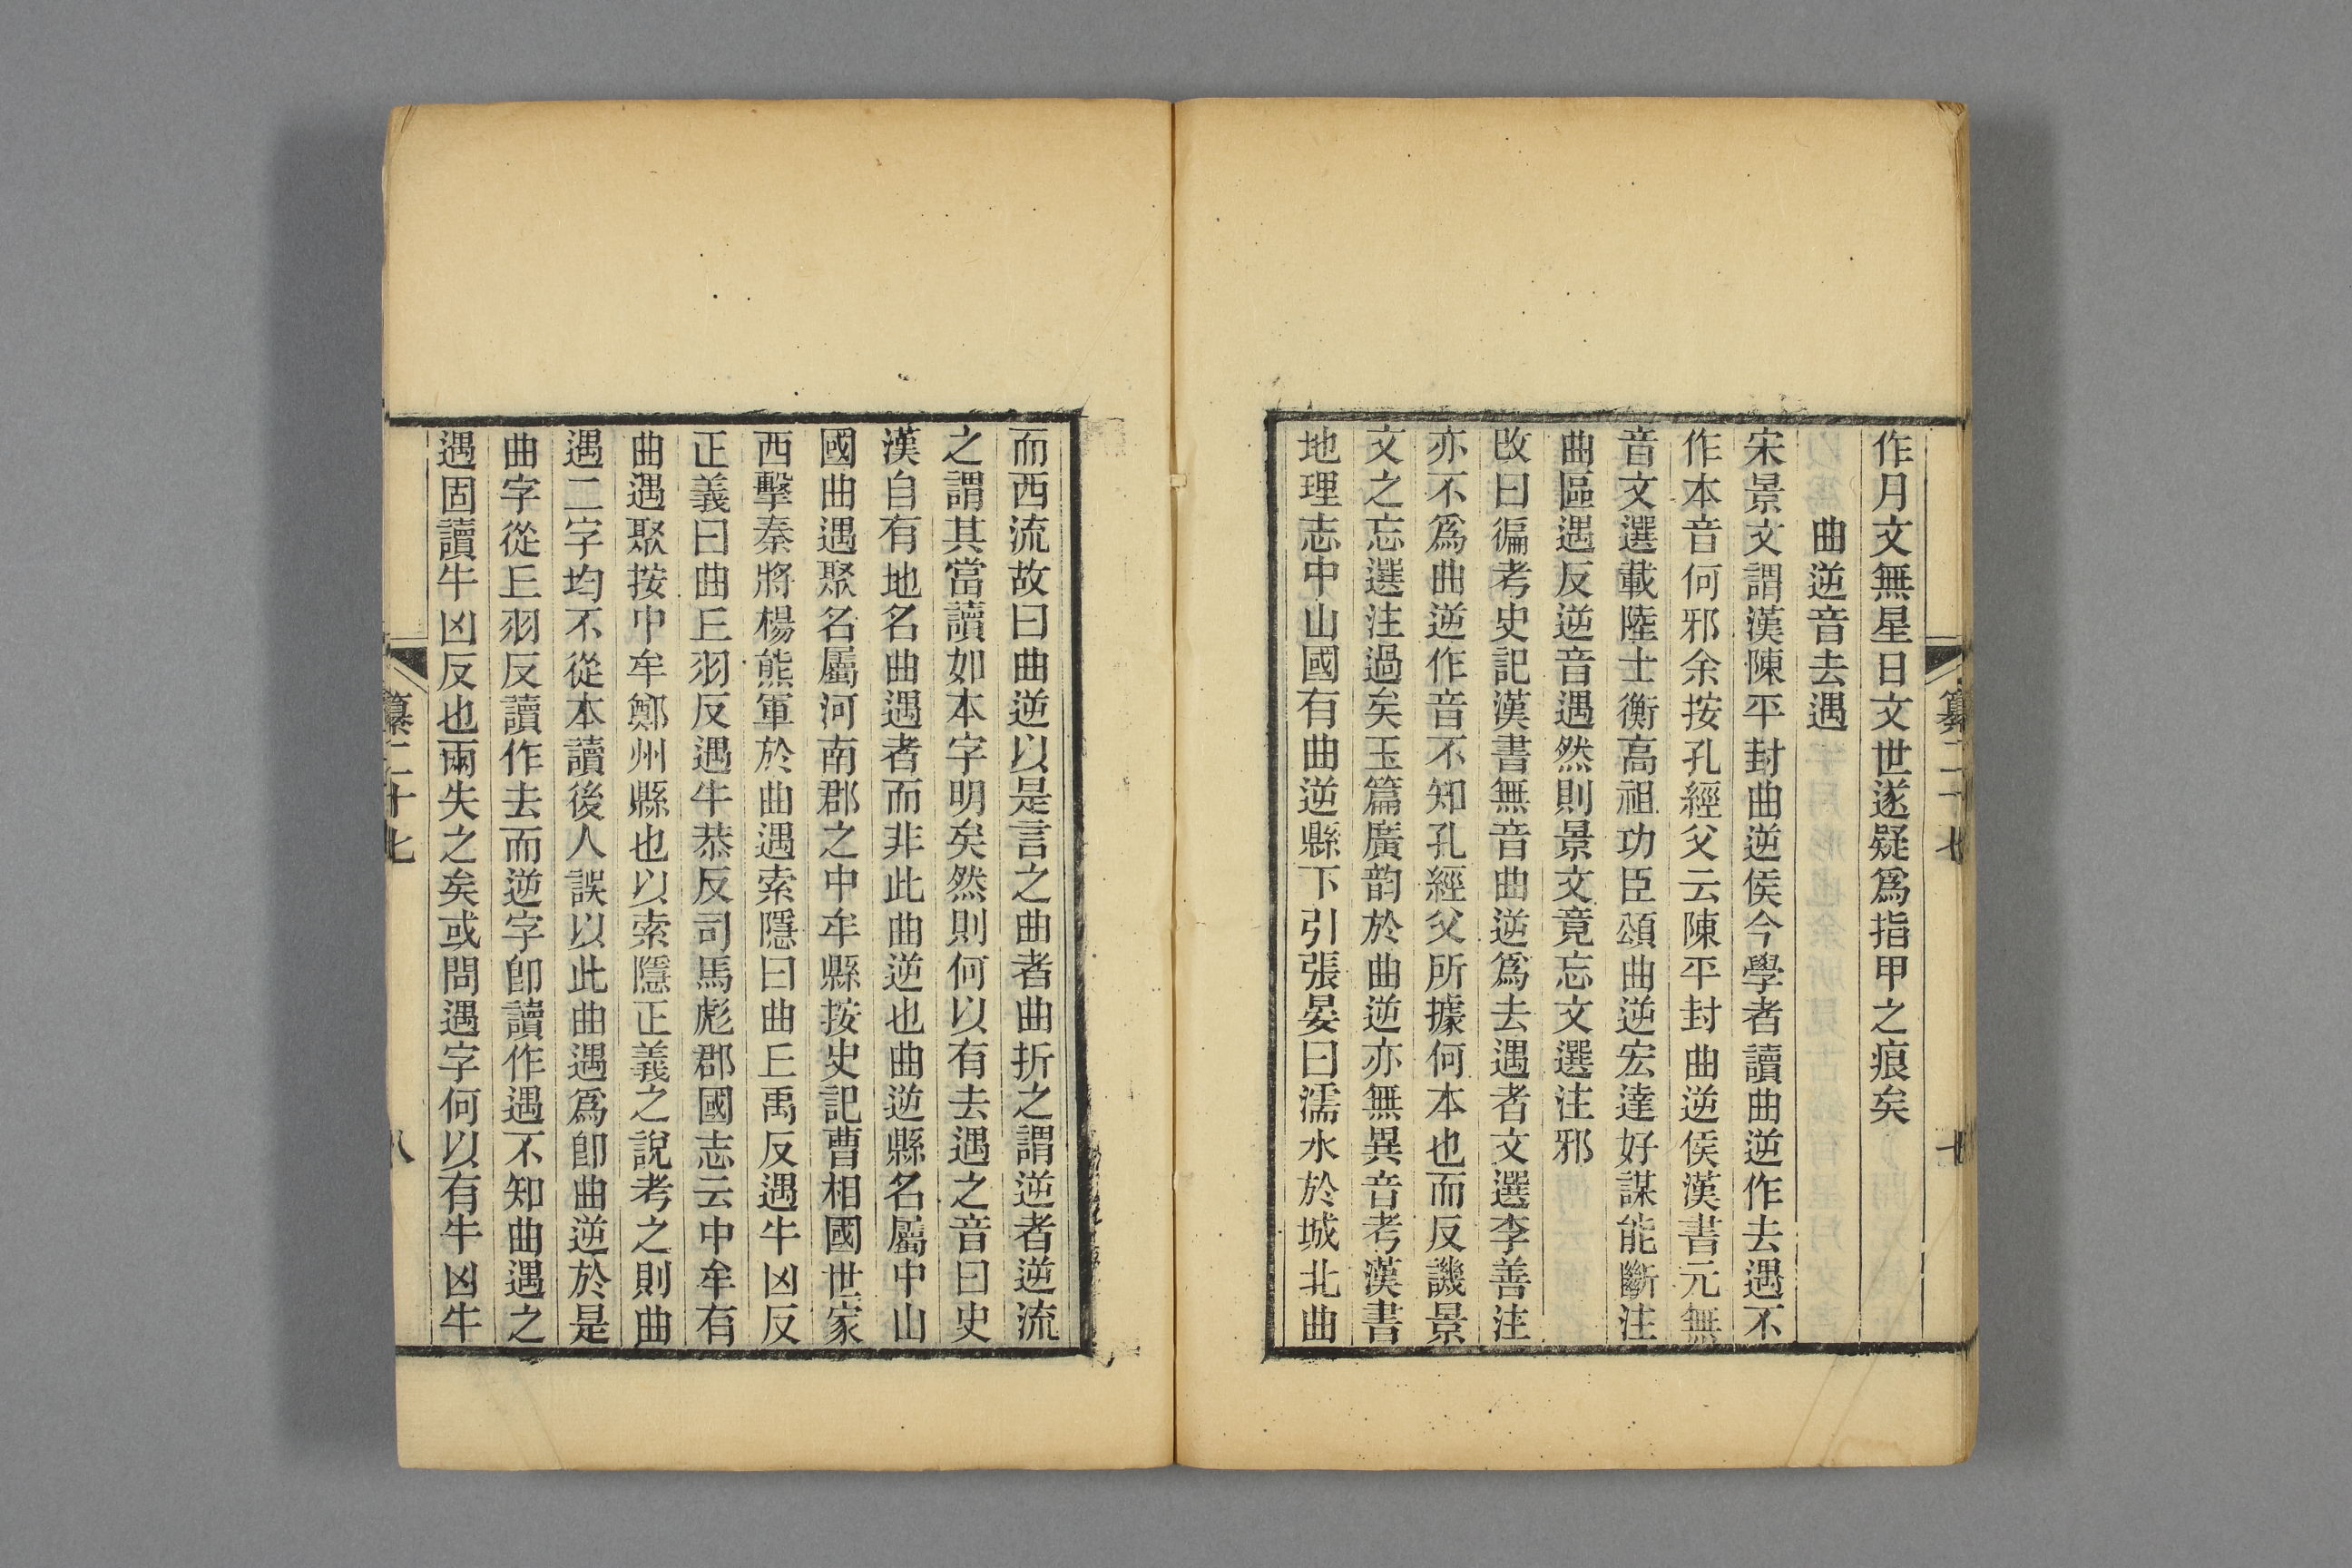 作月文無星日文世遂疑爲指甲之痕矣
曲逆音去遇
宋景文謂漢陳平封曲逆侯今學者讀曲逆作去遇不
作本音何邪余按孔經父云陳平封曲逆侯漢書元無
音文選載陸士衡高祖功臣頌曲逆宏達好謀能斷注
曲區遇反逆音遇然則景文竟忘文選注邪
攺曰徧考史記漢書無音曲逆爲去遇者文選李善注
亦不爲曲逆作音不知孔經父所據何本也而反譏景
文之忘選注過矣玉篇廣韵於曲逆亦無異音考漢書
地理志中山國有曲逆縣下引張晏曰濡水於城北曲
纂二十七
七
而西流故曰曲逆以是言之曲者曲折之謂逆者逆流
之謂其當讀如本字明矣然則何以有去遇之音曰史
漢自有地名曲遇者而非此曲逆也曲逆縣名屬中山
國曲遇聚名屬河南郡之中牟縣按史記曹相國世家
西擊秦將楊熊軍於曲遇索隱曰曲丘禹反遇牛凶反
正義曰曲丘羽反遇牛恭反司馬彪郡國志云中牟有
曲遇聚按中牟鄭州縣也以索隱正義之說考之則曲
遇二字均不從本讀後人誤以此曲遇爲卽曲逆於是
曲字從丘羽反讀作去而逆字卽讀作遇不知曲遇之
遇固讀牛凶反也兩失之矣或問遇字何以有牛凶牛
纂二十七
八